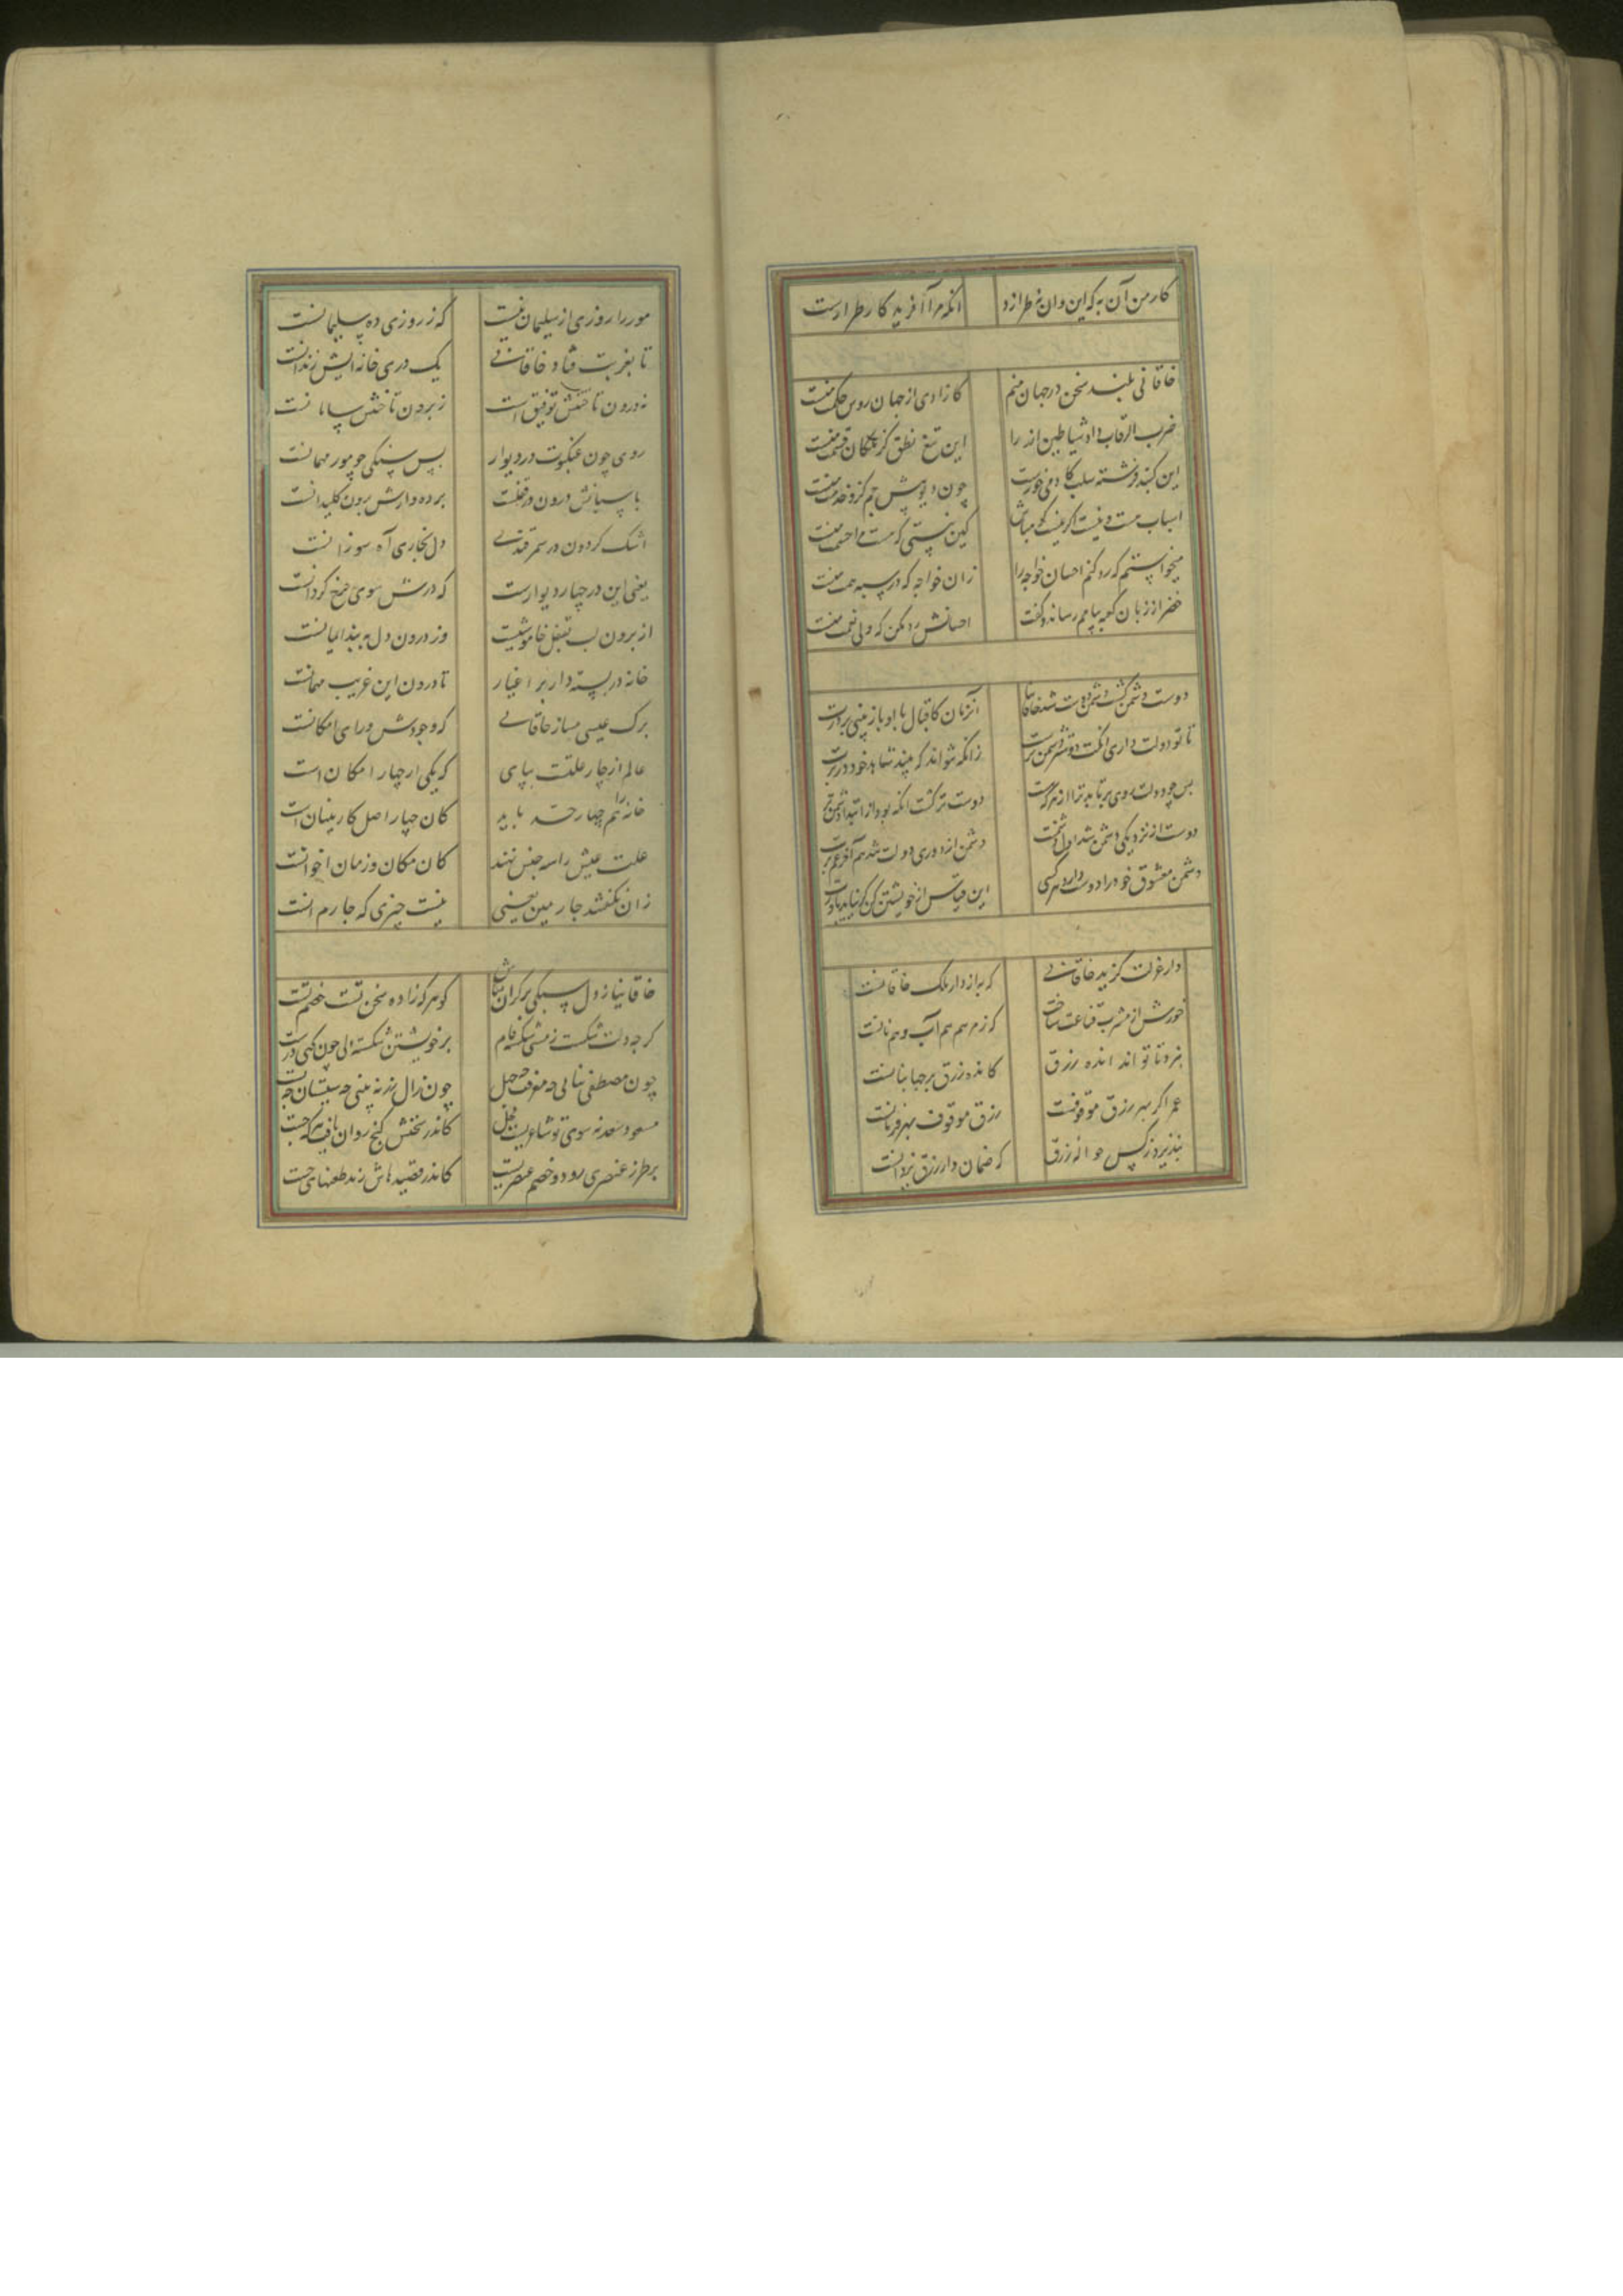 کار من آن به که این وان نطرازد
انکه مرا آفرید کار طرازست
خاقانی بلند سخن در جهان منم
کازادی از جهان روش حکمت منست
ضرب الرقاب داد شیاطین از را
این تیغ نطق کز ملکان قسمت منست
این کنبد فرشته سلب کادمی خورست
چون دیو پیش جم کرو خدمت منست
اسباب هست و نیست اکر نیست کو مباش
کین نیستی که هست مرا حشمت منست
میخواستم که رد کنم احسان خواجه را
زان خواجه که در سیه همت منست
خضر از زبان کعبه پیامم رساند و کفت
احسانش رد مکن که ولی نعمت منست
دوست دشمن کشت و دشمن دوست شد خاقانیا
آنزمان کاقبال با او باز بینی بر درت
تا تو دولت داری آنکت دوستتر دشمن ترست
زانکه نتواند که بیند شاهد خود در برت
پس چو دولت روی برتابد ترا از هر که هست
دوست تر کشت انکه بود از ابتدا دشمن ترت
دوست از نزدیکی دشمن شد اول در نخست
دشمن از دوری دولت شد هم آخر غم برت
دشمن معشوق خود را دوست دارد هر کسی
این قیاس از خویشتن کن کر نیاید باورت
دار عزلت کزید خاقانی
که به از دار ملک خاقانست
خورش از مشرب قناعت ساخت
که ز مرهم هم آب و هم نانست
نبرد تا تواند انده رزق
کانده رزق بر جهانبانست
عمر اکر بهر رزق موقوفست
رزق موقوف بهر فرمانست
نپذیرد ز کس حواله رزق
که ضمان دار رزق یزدانست
مور را روزی از سلیمان نیست
که ز روزی ده سلیمانست
تا بغربت فتاد خاقانی
یک دری خانه ایش زندانست
نه درون تاختنش توفیق است
ز برون تاختنش سامانست
روی چون عنکبوت در دیوار
پس سنکی چو مور مهمانست
پاسبانش درون در قفلست
پرده دارش برون کلیدانست
اشک کردون در سمرقندی
دل بخاری آه سوزانست
یعنی این در چهار دیوارست
که درش سوی چرخ کردانست
از برون لب بقفل خاموشیست
وز درون دل به بند ایمانست
خانه در بسته دار بر اغیار
تا درون این غریب مهمانست
برک عیسی مساز خاقانی
که وجودش ورای امکانست
عالم از چار علتست بپای
که یکی ار چهار امکان است
خانه را هم چهار حد باید
کان چهار اصل کار بنیان است
علت عیش را سه جنس نهند
کان مکان و زمان اخوانست
زان نکفتند چارمین یعنی
نیست چیزی که چارم انست
خاقانیا ز دل سبکی سر کران مباش
کو هر که زاده سخن تست خصم تست
کرچه دلت شکست ز مشتی شکسته نام
بر خویشتن شکسته دلی چون کنی درست
چون مصطفی بنائی چه معرفت چه جهل
چون زال زر نه بینی چه سیستان چه بست
مسعود سعد نه سوی تو شاعریست فحل
کاندر سخنش کنج روان یافت هر که جست
بر طرز عنصری رود و خصم عنصریست
کاندر قصیدهاش زند طعنهای چست